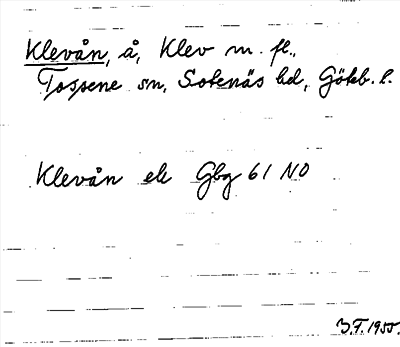 Klevån, å, Klev m. fl.,
Tossene sn, Sotenäs hd, Göteb. l.
Klevån ek Gbg 61 NO
B.F. 1955.